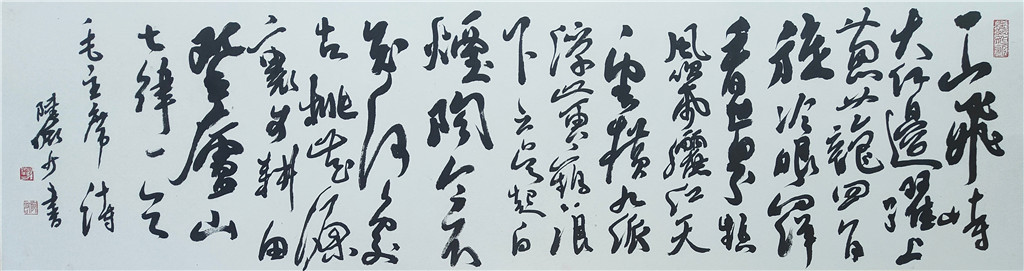 一山飛峙
大江邊躍上
葱蘢四百
旋冷眼向洋
看世界熱
風吹雨灑江天
雲橫九派
浮黃鶴浪
下三吳起白
煙陶令不
知何處
去桃花源
裏可耕田
登廬山
七律一首
毛主席詩
書